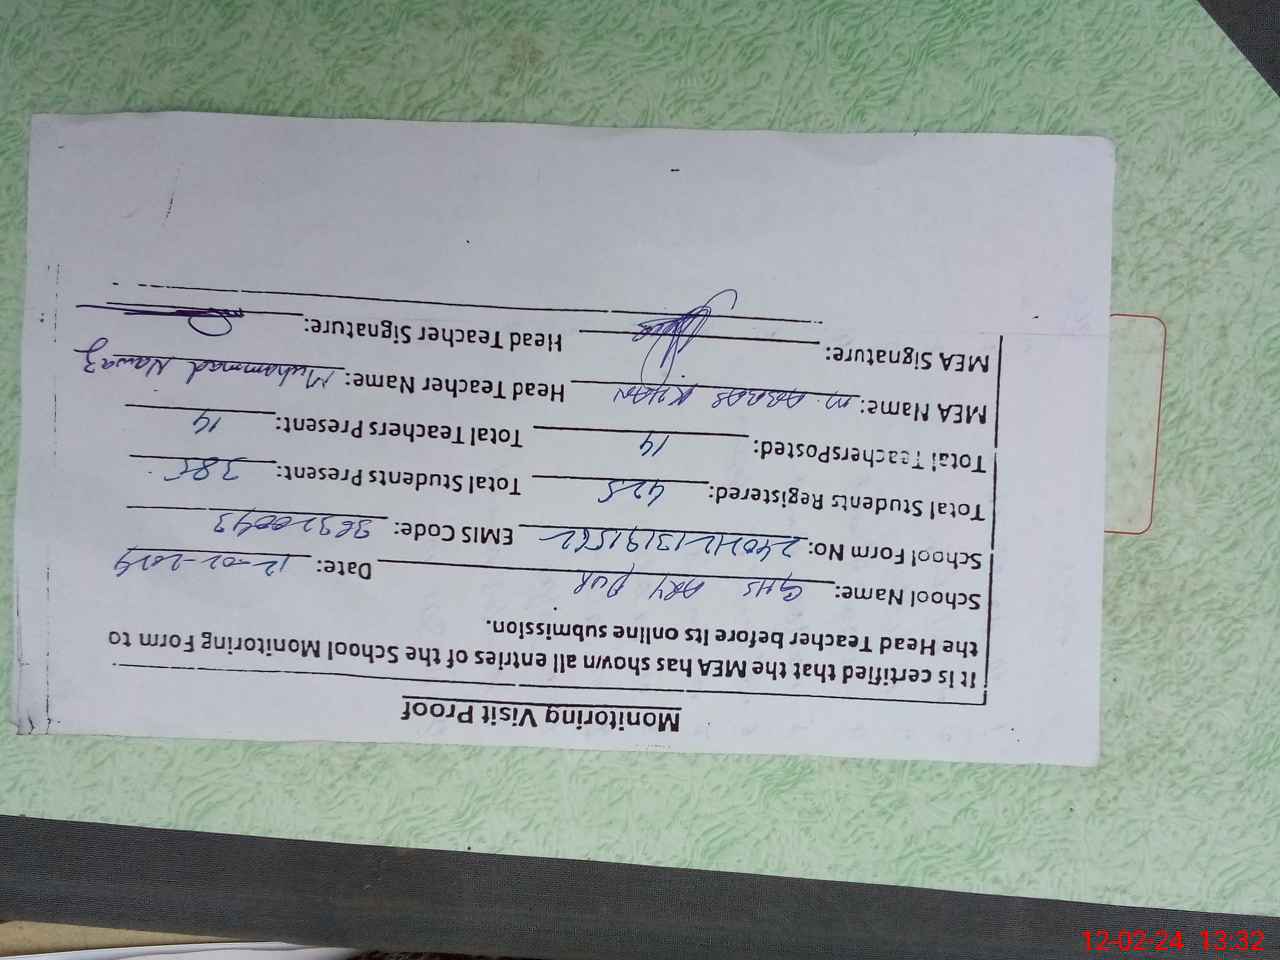 Monitoring Visit Proof
It is certified that the MEA has shown all entries of the School Monitoring Form to
the Head Teacher before its online submission.
School Name: GHS ARY PUR Date: 12-02-2024
School Form No: EMIS Code: 38320043
Total Students Registered: 425 Total Students Present: 385
Total TeachersPosted: 14 Total Teachers Present: 14
MEA Name: M. ABRAR KHAN Head Teacher Name: Muhammad Nawaz
MEA Signature: Head Teacher Signature:
12-02-24 13:32